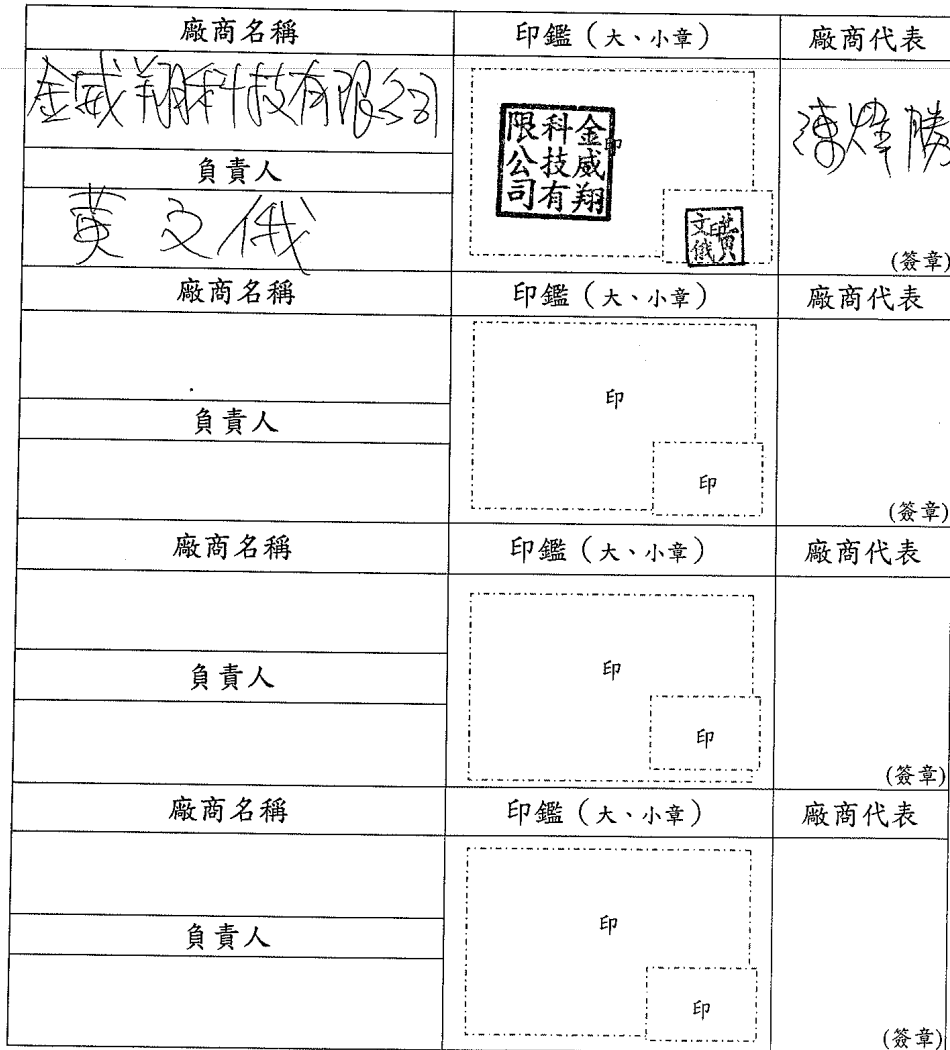 廠商名稱 印鑑（大、小章） 廠商代表
金威翔科技有限公司
金威翔
科技有
限公司
印
負責人
黃文俄
黃
文俄
印
(簽章)
廠商名稱 印鑑（大、小章） 廠商代表
印
負責人
印
(簽章)
廠商名稱 印鑑（大、小章） 廠商代表
印
負責人
印
(簽章)
廠商名稱 印鑑（大、小章） 廠商代表
印
負責人
印
(簽章)